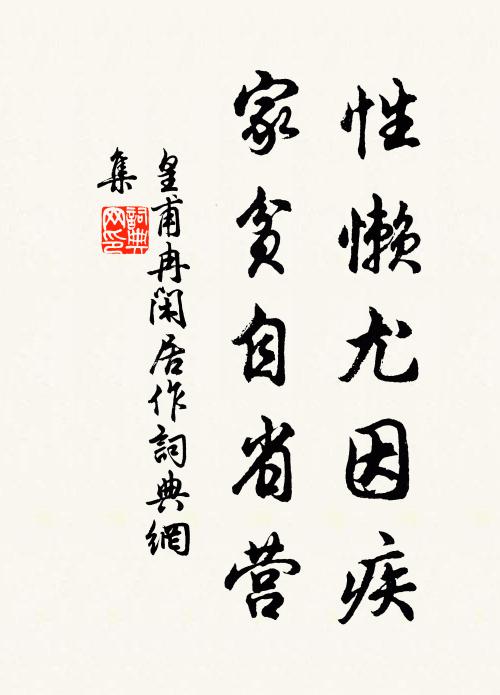 性懒尤因疾
家贫自省营
皇甫冉閑居作詞典網
集
詞典
网印